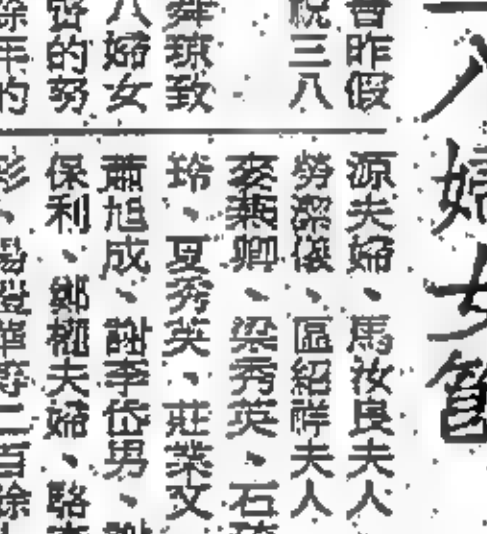 八婦女節
會昨假
祝三八
舜琼致
八婦女
的努
餘年的
源夫婦、馬汝良夫人
勞潔儀、區紹祥夫人
麥燕卿、梁秀英、石
玲、夏秀英、莊業文
蕭旭成、謝季岱男、謝
保利、鄭樾夫婦、駱
彩、楊證華等二百餘